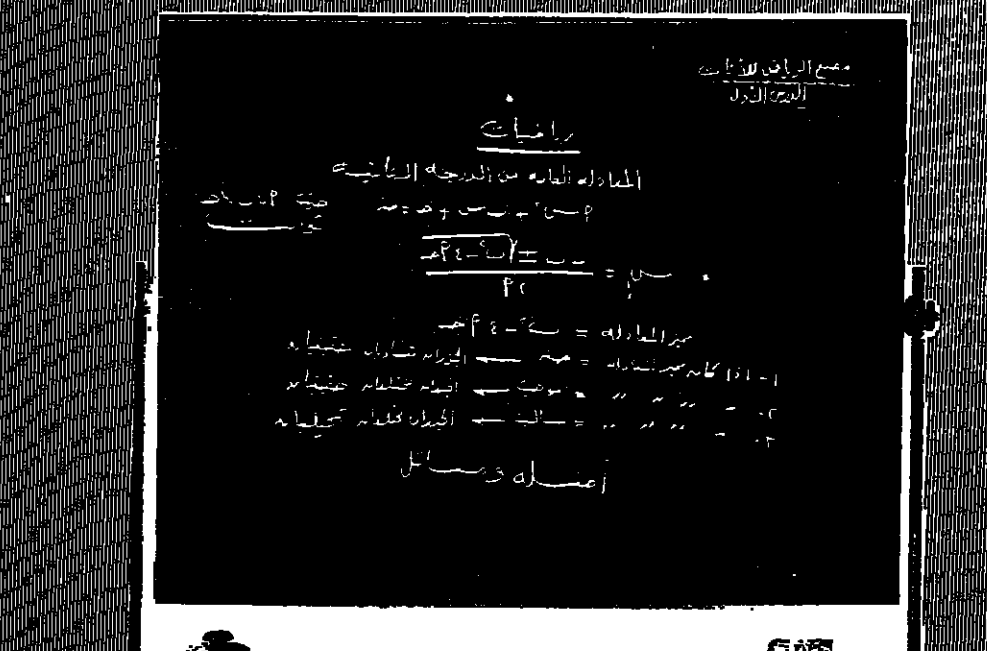 الدرس الأول
رياضيات
المعادله العامه من الدرجة الثانيه
٢س٢ + ب س + حـ = صفر
س = - ب ± √ب٢ - ٤ ٢ حـ / ٢ ٢
مميز المعادله = ب٢ - ٤ ٢ حـ
١- اذا كان مميز المعادله = صفر ← الجذران متساويان حقيقيان
٢- " " " " = موجب ← الجذران مختلفان حقيقيان
٣- " " " " = سالب ← الجذران مختلفان تخيليان
أمثله ومسائل